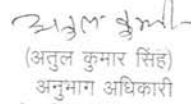 अतुल कुमार
(अतुल कुमार सिंह)
अनुभाग अधिकारी